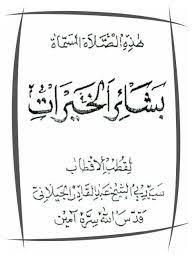 هٰذِهِ الصَّلَاةُ الْمُسَمَّاة
بَشَائِرُ الْخَيْرَاتِ
لِقُطْبِ الْأَقْطَابِ
سَيِّدِي الشَّيْخ عَبْدِ الْقَادِرِ الْجِيلَانِي
قَدَّسَ اللهُ سِرَّهُ آمِين